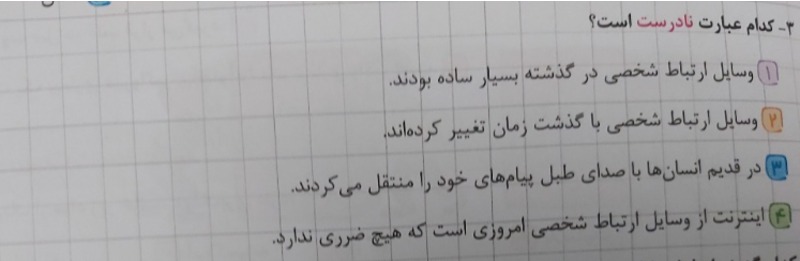 ۳- کدام عبارت نادرست است؟
۱ وسایل ارتباط شخصی در گذشته بسیار ساده بودند.
۲ وسایل ارتباط شخصی با گذشت زمان تغییر کرده‌اند.
۳ در قدیم انسان‌ها با صدای طبل پیام‌های خود را منتقل می‌کردند.
۴ اینترنت از وسایل ارتباط شخصی امروزی است که هیچ ضرری ندارد.